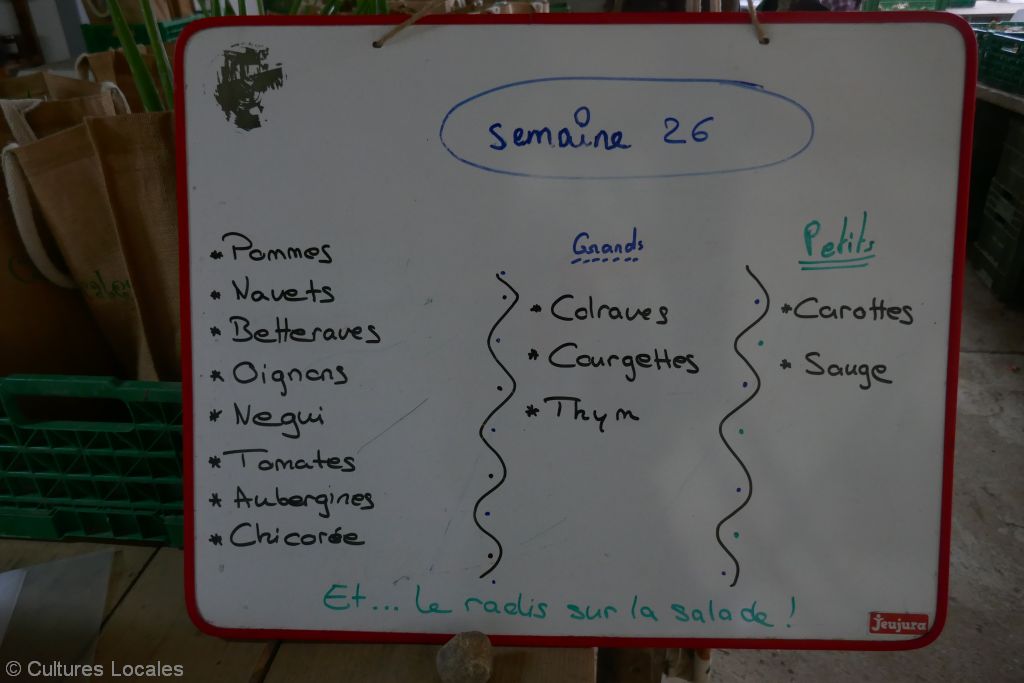 semaine 26
* Pommes
* Navets
* Betteraves
* Oignons
* Negui
* Tomates
* Aubergines
* Chicorée
Grands
* Colraves
* Courgettes
* Thym
Petits
* Carottes
* Sauge
Et... le radis sur la salade !
Jeujura
© Cultures Locales